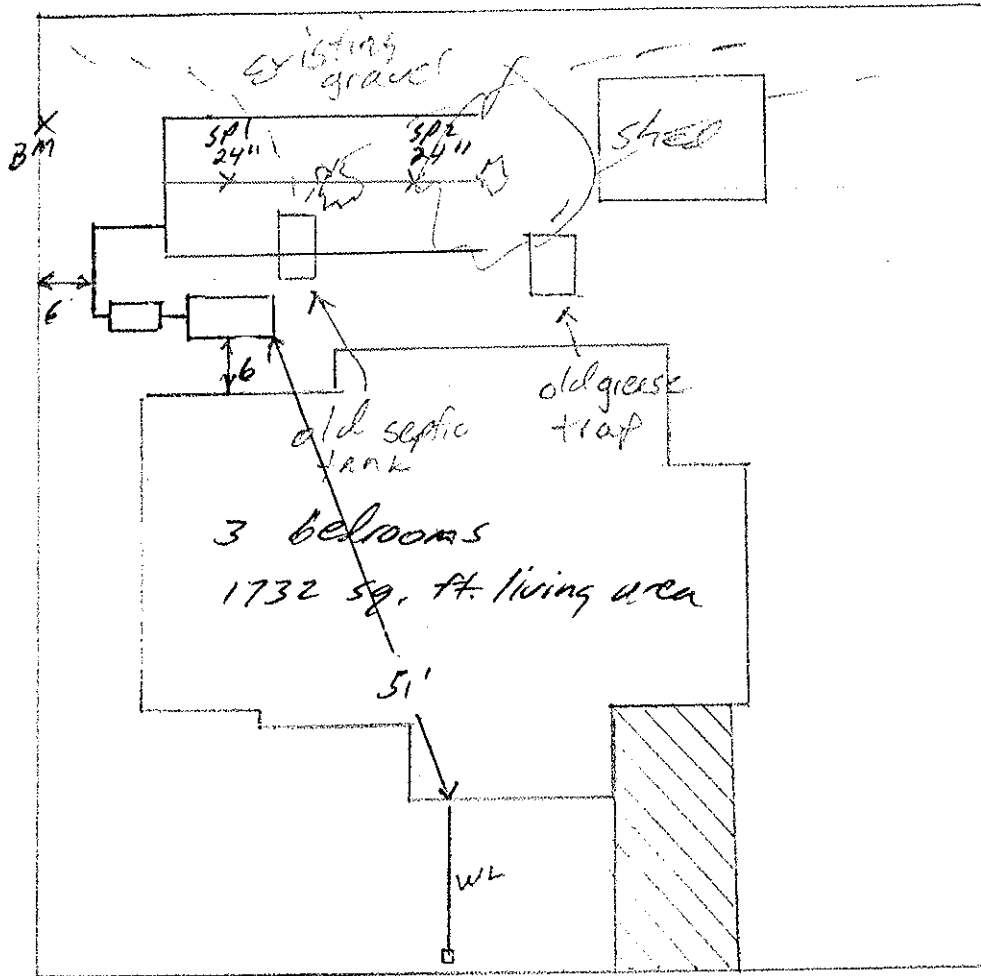 existing
gravel
BM
SP1
24"
SP2
24"
shed
6
6
old septic
tank
old grease
trap
3 bedrooms
1732 sq. ft. living area
51'
WL